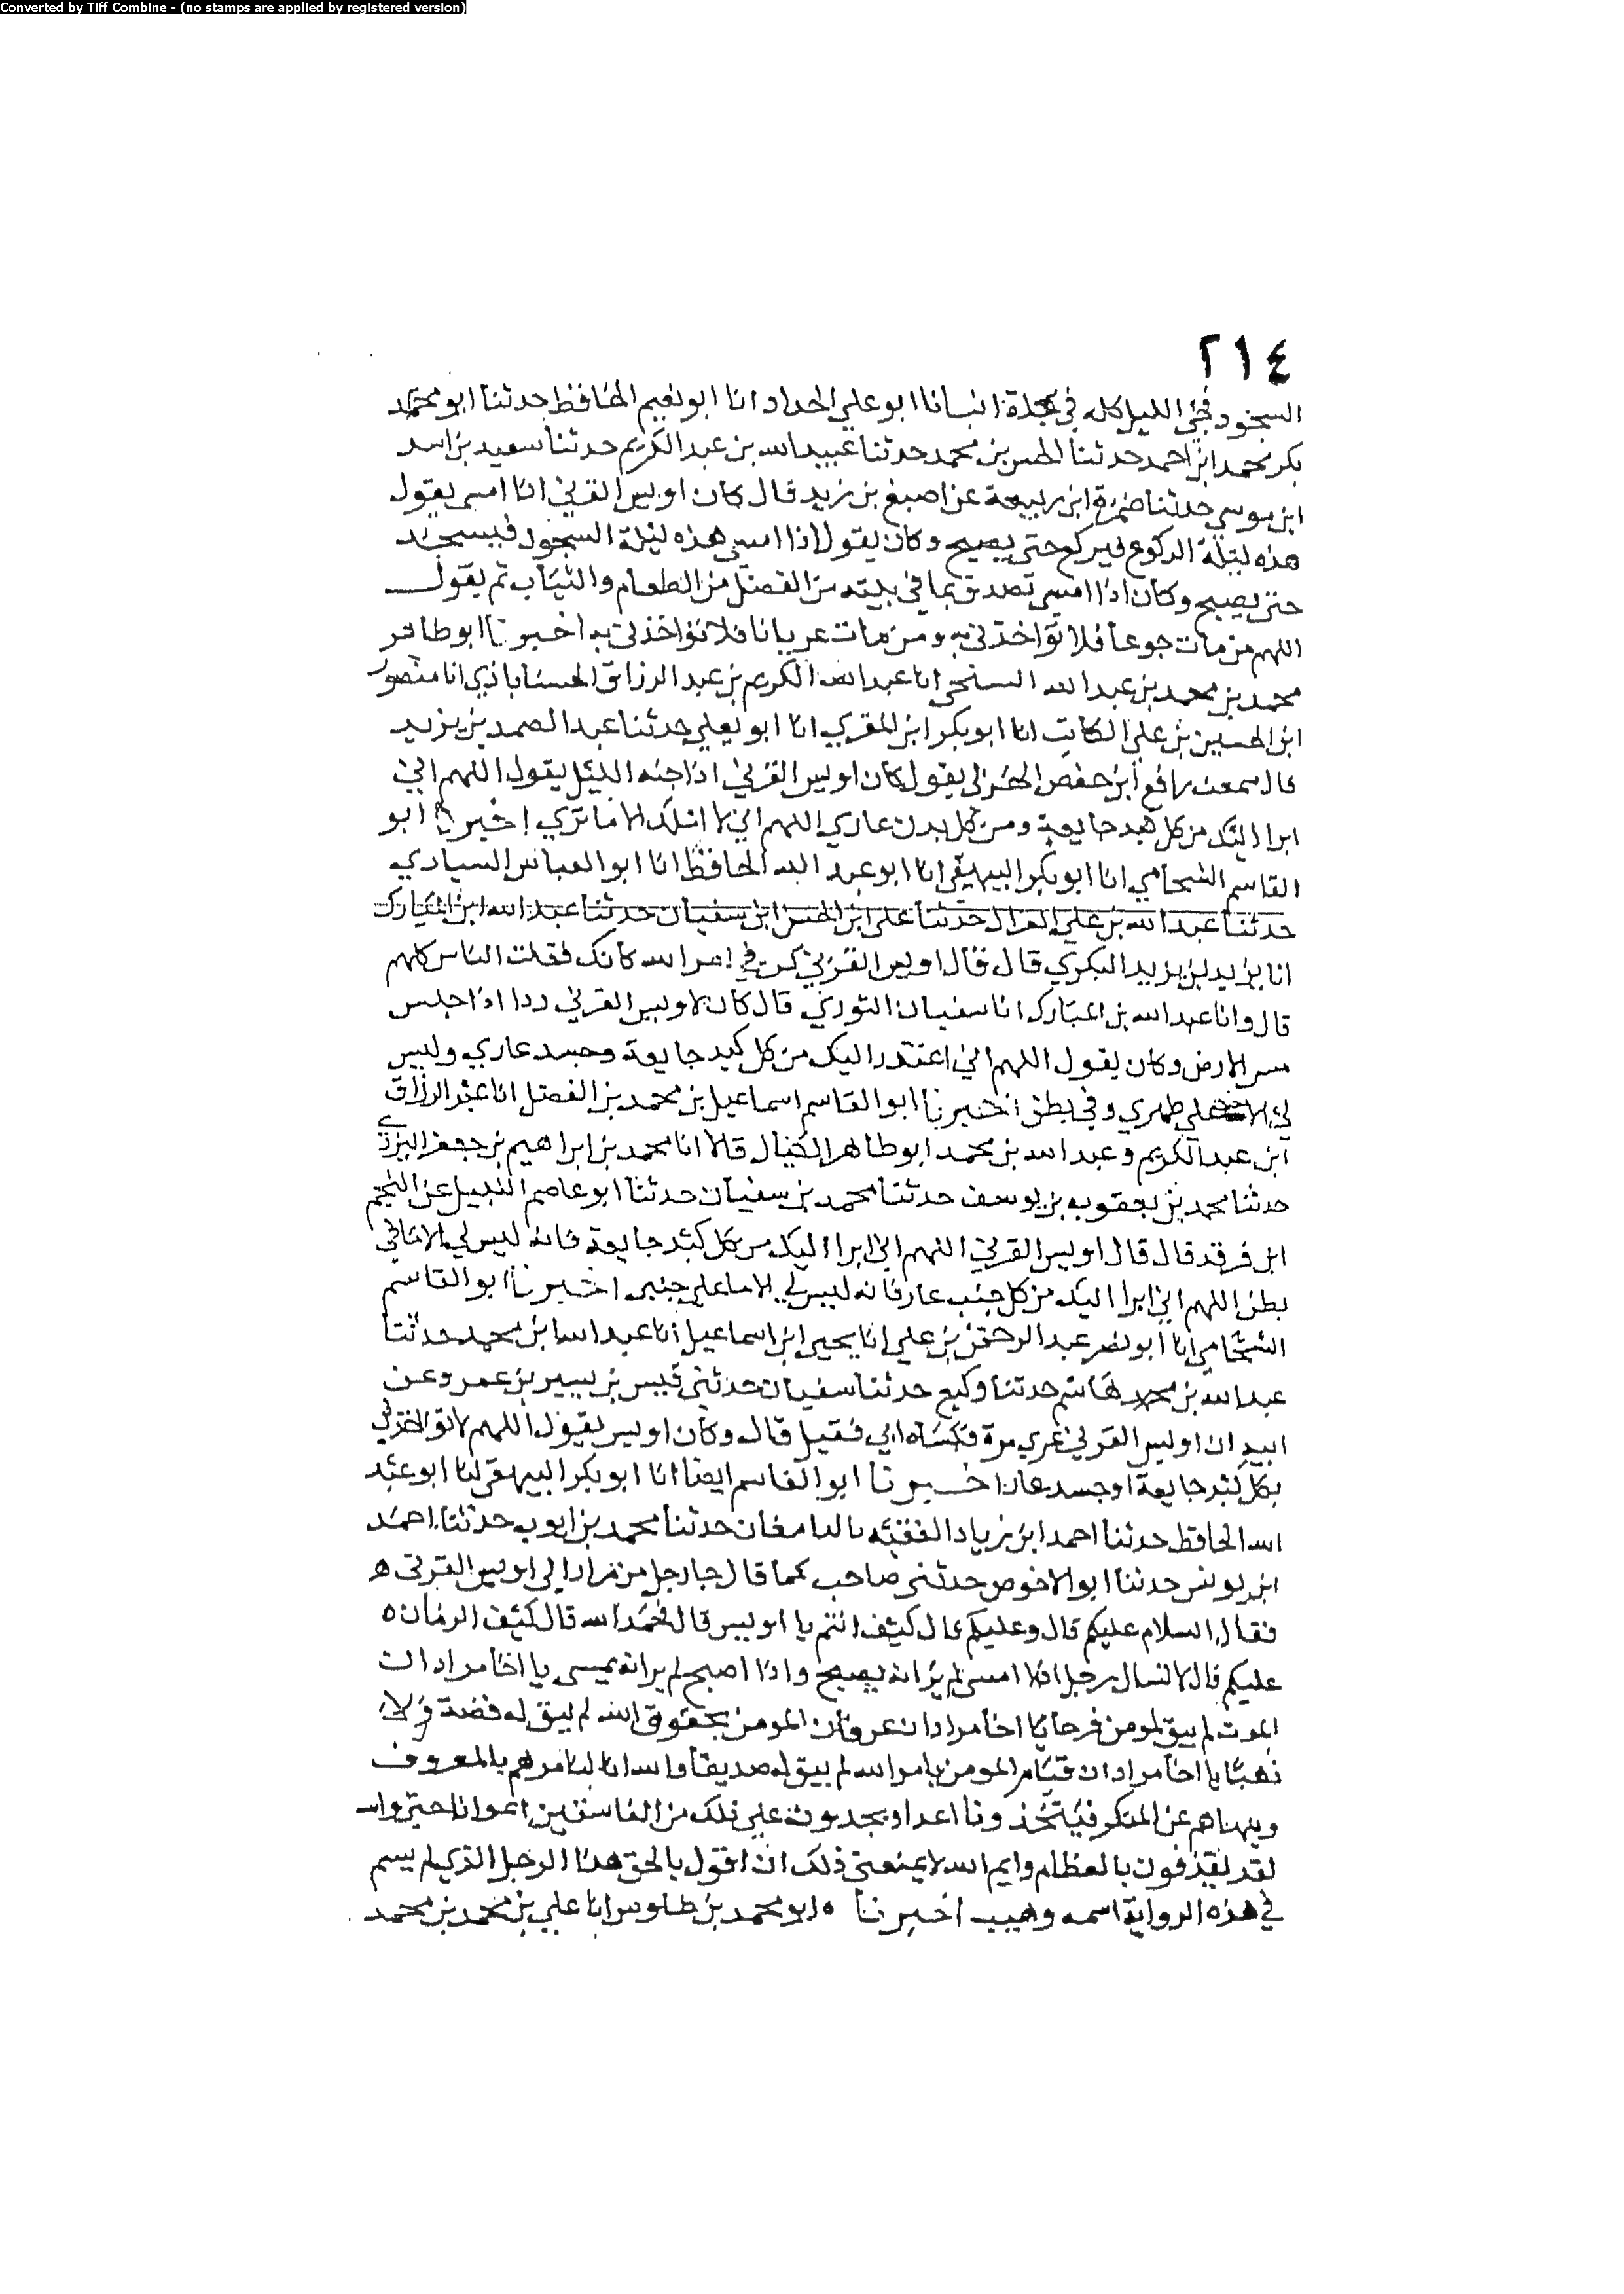 Converted by Tiff Combine - (no stamps are applied by registered version)
٢١٤
السجود فيحي الليل كله في سجدة انبانا ابو علي الحداد انا ابو نعيم الحافظ حدثنا ابو محمد
بكر محمد ابن احمد حدثنا الحسن بن محمد حدثنا عبيد الله بن عبد الكريم حدثنا سعيد بن اسد
ابن موسى حدثنا ضمرة ابن ربيعة عن اصبغ بن زيد قال كان اويس القرني اذا امسى يقول
هذه ليلة الركوع فيركع حتى يصبح وكان يقول اذا امسى هذه ليلة السجود فيسجد
حتى يصبح وكان اذا امسى تصدق بما في بيته من الفضل من الطعام والثياب ثم يقول
اللهم من مات جوعا فلا تواخذني به ومن مات عريانا فلا تواخذني به اخبرنا ابو طاهر
محمد بن محمد بن عبد الله السنجي انا عبد الله الكريم بن عبد الرزاق الحسناباذي انا منصور
ابن الحسين بن علي الكاتب انا ابو بكر ابن المقري انا ابو يعلي حدثنا عبد الصمد بن يزيد
قال سمعت رافع ابن حفص يقول كان اويس القرني اذا جنه الليل يقول اللهم اني
ابرا اليك من كل كبد جايعة ومن كل بدن عاري اللهم اني لا املك الا ما تري اخبرنا ابو
القاسم الشحامي انا ابو بكر البيهقي انا ابو عبد الله الحافظ انا ابو العباس السياري
حدثنا عبد الله بن علي الغزال حدثنا علي ابن الحسن ابن سفيان حدثنا عبد الله ابن المبارك
انا يزيد بن يزيد البكري قال قال اويس القرني كن في امر الله كانك قتلت الناس كلهم
قال وانا عبد الله بن المبارك انا سفيان الثوري قال كان لاويس القرني ردا اذا جلس
مس الارض وكان يقول اللهم اني اعتذر اليك من كل كبد جايعة وجسد عاري وليس
لي الا علي ظهري وفي بطني اخبرنا ابو القاسم اسماعيل بن محمد بن الفضل انا عبد الرزاق
ابن عبد الكريم وعبد الله بن محمد ابو طاهر قالا انا محمد بن ابراهيم بن جعفر اليزدي
حدثنا محمد بن يعقوب بن يوسف حدثنا محمد بن سفيان حدثنا ابو عاصم النبيل عن النجم
ابن فرقد قال قال اويس القرني اللهم اني ابرا اليك من كل كبد جايعة فانه ليس لي الا ما في
بطني اللهم اني ابرا اليك من كل جنب عار فانه ليس لي الا ما علي جنبي اخبرنا ابو القاسم
الشحامي انا ابو نصر عبد الرحمن بن علي انا يحيى ابن اسماعيل انا عبد الله ابن محمد حدثنا
عبد الله بن هاشم حدثنا وكيع حدثنا سفيان حدثني قيس بن يسير بن عمرو عن
ابيه ان اويس القرني عري مرة فكساه ابي فقيل قال وكان اويس يقول اللهم لا تواخذني
بكل كبد جايعة او جسد عار اخبرنا ابو القاسم ايضا انا ابو بكر البيهقي انا ابو عبد
الله الحافظ حدثنا احمد ابن زياد الفقيه بالدامغان حدثنا محمد بن ايوب حدثنا احمد
ابن يونس حدثنا ابو الاحوص حدثني صاحب كما قال جا رجل من مراد الى اويس القرني ه
فقال السلام عليكم قال وعليكم قال كيف انتم يا اويس قال نحمد الله قال كيف الزمان ه
عليكم قال لا تسال رجل اذا امسى لم ير انه يصبح واذا اصبح لم ير انه يمسي يا اخا مراد ان
الموت لم يبق لمومن فرحا يا اخا مراد ان عرفان المومن بحقوق الله لم يبق له فضة ولا
ذهبا يا اخا مراد ان قيام المومن بامر الله لم يبق له صديقا والله انا لنامرهم بالمعروف
وينهاهم عن المنكر فيتخذونا اعدا ويجدون علي ذلك من الفاسقين اعوانا حتى والله
لقد يقذفون بالعظام وايم الله لا يمنعني ذلك ان اقول بالحق هذا الرجل الذي لم يسم
في هذه الرواية اسمه وهيب اخبرنا ه ابو محمد بن طاوس انا علي بن محمد بن محمد